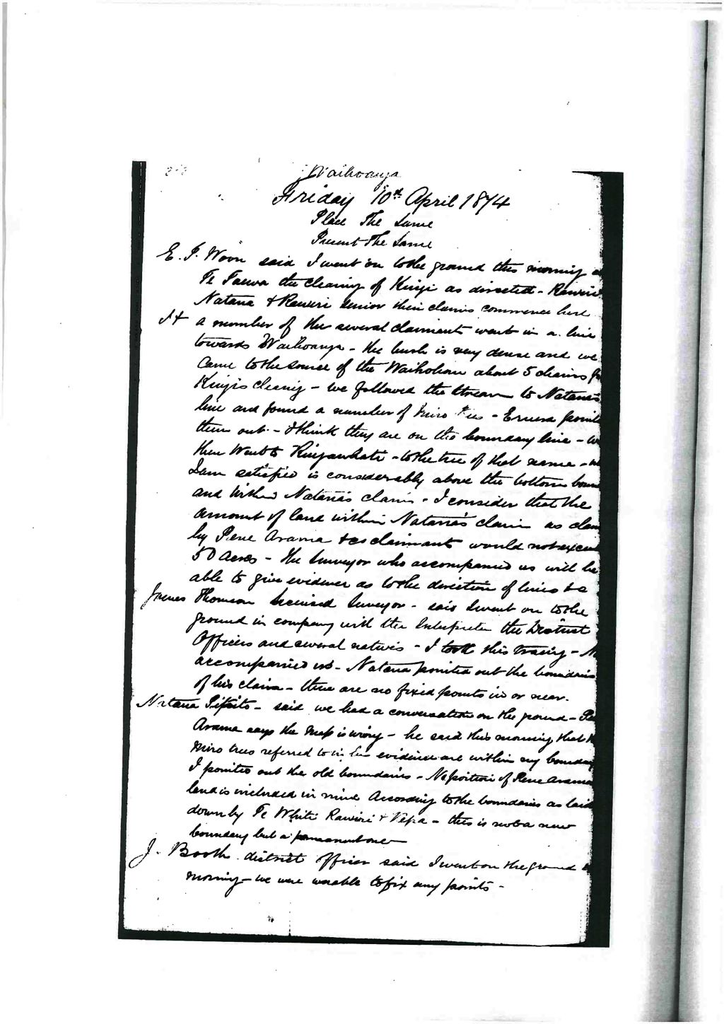 Waihoanga
Friday 10th April 1874
Place The Same
Present The Same
E. J. Woon said I went on to the ground this morning
Te Taewa the clearing of Kingi as directed - Rawiri
Natana & Rawiri Senior their claims commence here
a number of the several claimants went in a line
towards Waihoanga - the bush is very dense and we
came to the source of the Waihohou about 5 chains
Kingi's clearing - we followed the stream to Natana's
line and found a number of miro trees - Eruera
them out - I think they are on the boundary line -
then went to - to the tree of that name -
I am satisfied is considerably above the bottom
and within Natana's claim - I consider that the
amount of land within Natana's claim as
by Rene Arama & co claimants would not
50 Acres - the Surveyor who accompanied us will be
able to give evidence as to the direction of lines &c
James Thomson licensed Surveyor - said I went on to the
ground in company with the Interpreter the District
Officer and several natives - I took this tracing -
accompanied us - Natana pointed out the boundaries
of his claim - there are no fixed points in or near.
Natana Pipiito - said we had a conversation on the ground -
Arama says the map is wrong - he said this morning that
miro trees referred to in his evidence are within my
I pointed out the old boundaries - No portion of Rene Arama
land is included in mine According to the boundaries as laid
down by Te Whiti Rawiri & - this is not a new
boundary but a permanent one
J. Booth district officer said I went on the ground
morning - we were unable to fix any points -